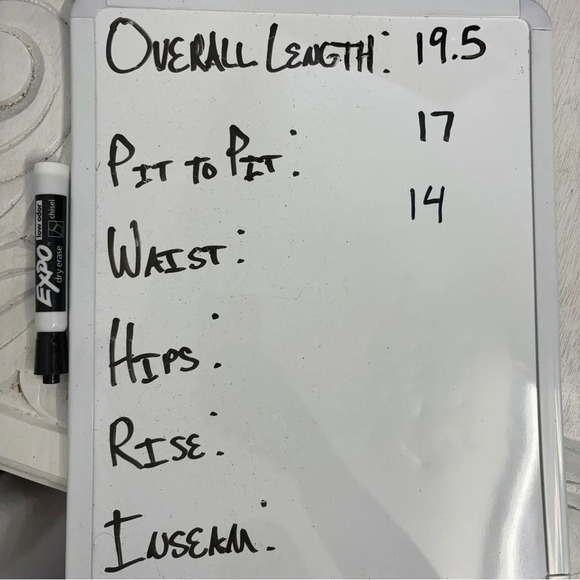 OVERALL LENGTH: 19.5
PIT TO PIT: 17
WAIST: 14
HIPS:
RISE:
INSEAM:
EXPO
low odor
dry erase
chisel